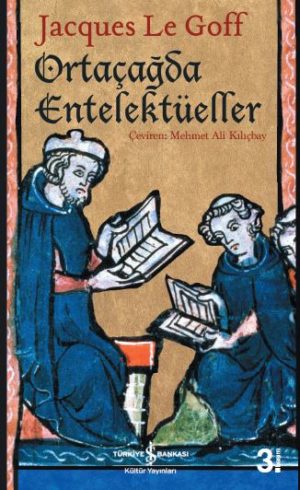 Jacques Le Goff
Ortaçağda
Entelektüeller
Çeviren: Mehmet Ali Kılıçbay
TÜRKİYE İŞ BANKASI
Kültür Yayınları
3.